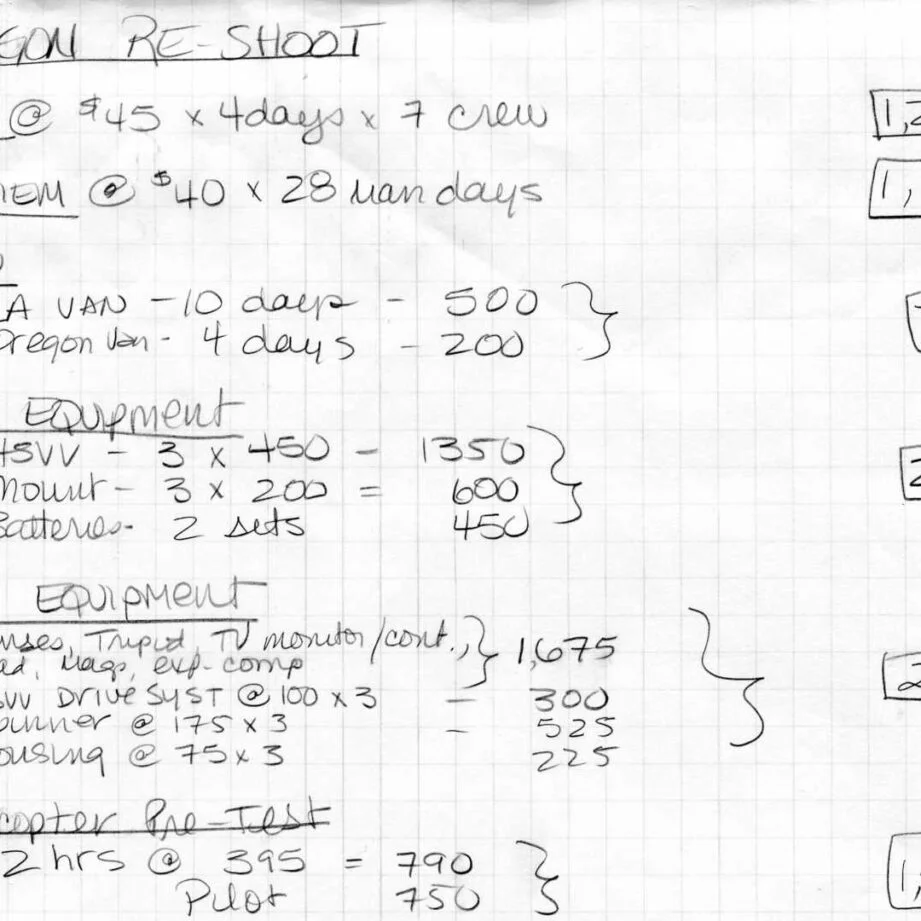 EGON RE-SHOOT
@ $45 x 4days x 7 crew 1,2
IEM @ $40 x 28 man days 1,
LA VAN - 10 days - 500
Oregon Van - 4 days - 200
EQUIPMENT
HSVV - 3 x 450 - 1350
Mount - 3 x 200 = 600 2
Batteries - 2 sets 450
EQUIPMENT
nses, Tripod, TV monitor/cont., 1,675
ad, Mags, exp. comp 2
SVV DRIVE SYST @ 100 x 3 - 300
@ 175 x 3 - 525
ousing @ 75 x 3 225
copter Pre-Test
2 hrs @ 395 = 790 1,
Pilot 750